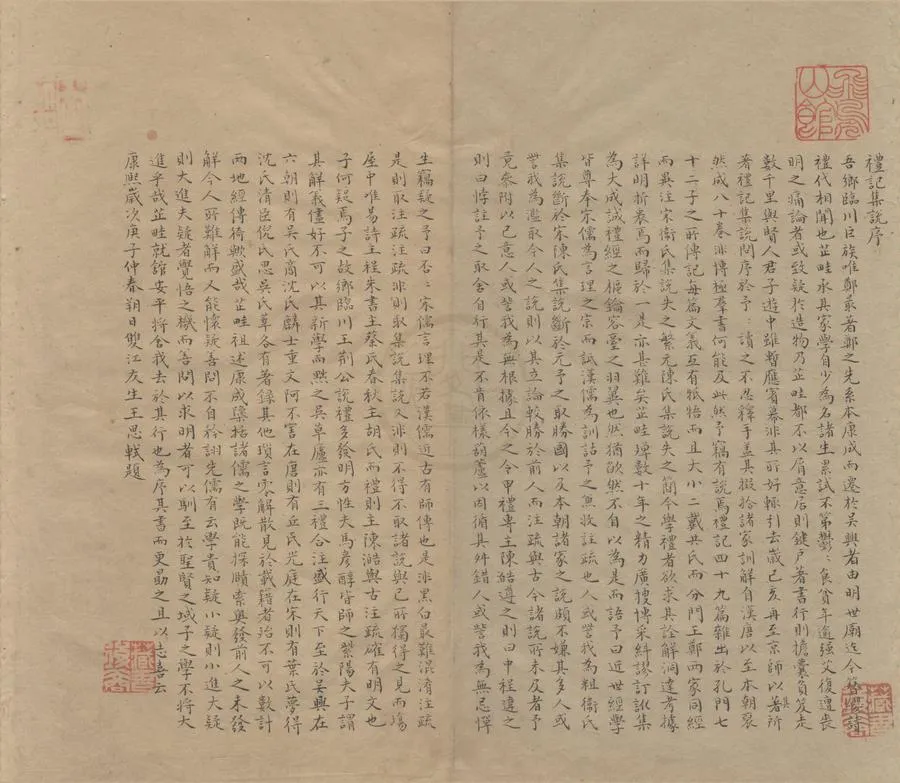 禮記集說序
吾鄉臨川巨族唯鄭最著鄭之先系本康成而遷於吳興者由明世廟迄今簪纓詩
禮代相聞也芷畦承其家學自少為名諸生累試不第鬱:食貧年逾強艾復遭喪
明之痛論者或致疑於造物乃芷畦都不以屑意居則鍵戶著書行則擔囊負笈走
數千里與賢人君子遊中雖暫應賓幕非其所好輒引去歲己亥再至京師以著所
著禮記集說問序於予:讀之不忍釋手蓋其掇拾諸家訓解自漢唐以至本朝裒
然成八十卷非博極羣書何能及此然予竊有說焉禮記四十九篇雜出於孔門七
十二子之所傳記每篇文氣互有牴牾而且大小二戴共氏而分門王鄭兩家同經
而異注宋衞氏集說失之繁元陳氏集說失之簡今學禮者欲求其詮解洞達考據
詳明折衷焉而歸於一是亦其難矣芷畦殫數十年之精力廣搜博采糾謬訂訛集
為大成誠禮經之樞鑰容臺之羽翼也然猶欿然不自以為是而語予曰近世經學
皆尊奉宋儒為言理之宗而詆漢儒為訓詁予之兼收註疏也人或訾我為粗衞氏
集說斷於宋陳氏集說斷於元予之取勝國以及本朝諸家之說頗不嫌其多人或
訾我為濫取今人之說則以其立論較勝於前人而注疏與古今諸說所未及者予
竟參附以己意人或訾我為無根據且今之令甲禮專主陳澔遵之則曰中程違之
則曰悖註予之取舍自行其是不肯依樣葫蘆以因循其舛錯人或訾我為無忌憚
生竊疑之予曰否:宋儒言理不若漢儒近古有師傳也是非黑白最難混淆注疏
是則取注疏注疏非則取集說集說又非則不得不取諸說與己所獨得之見而場
屋中唯易詩主程朱書主蔡氏春秋主胡氏而禮則主陳澔與古注疏確有明文也
子何疑焉子之故鄉臨川王荆公說禮多發明方性夫馬彥醇皆師之紫陽夫子謂
其解義儘好不可以其新學而黜之吳草廬亦有三禮合注盛行天下至於吳興在
六朝則有吳氏商沈氏麟士重文阿不害在唐則有丘氏光庭在宋則有葉氏夢得
沈氏清臣倪氏思吳氏莘各有著錄其他瑣言零解散見於載籍者殆不可以數計
兩地經傳猗歟盛哉芷畦祖述康成櫽括諸儒之學既能探賾索奧發前人之未發
解令人所難解而又能懷疑善問不自矜詡先儒有云學貴知疑小疑則小進大疑
則大進夫疑者覺悟之機而善問以求明者可以馴至於聖賢之域子之學不將大
進乎哉芷畦就館安平將舍我去於其行也為序其書而更勗之且以志喜云
康熙歲次庚子仲春朔日䀝江友生王思軾題